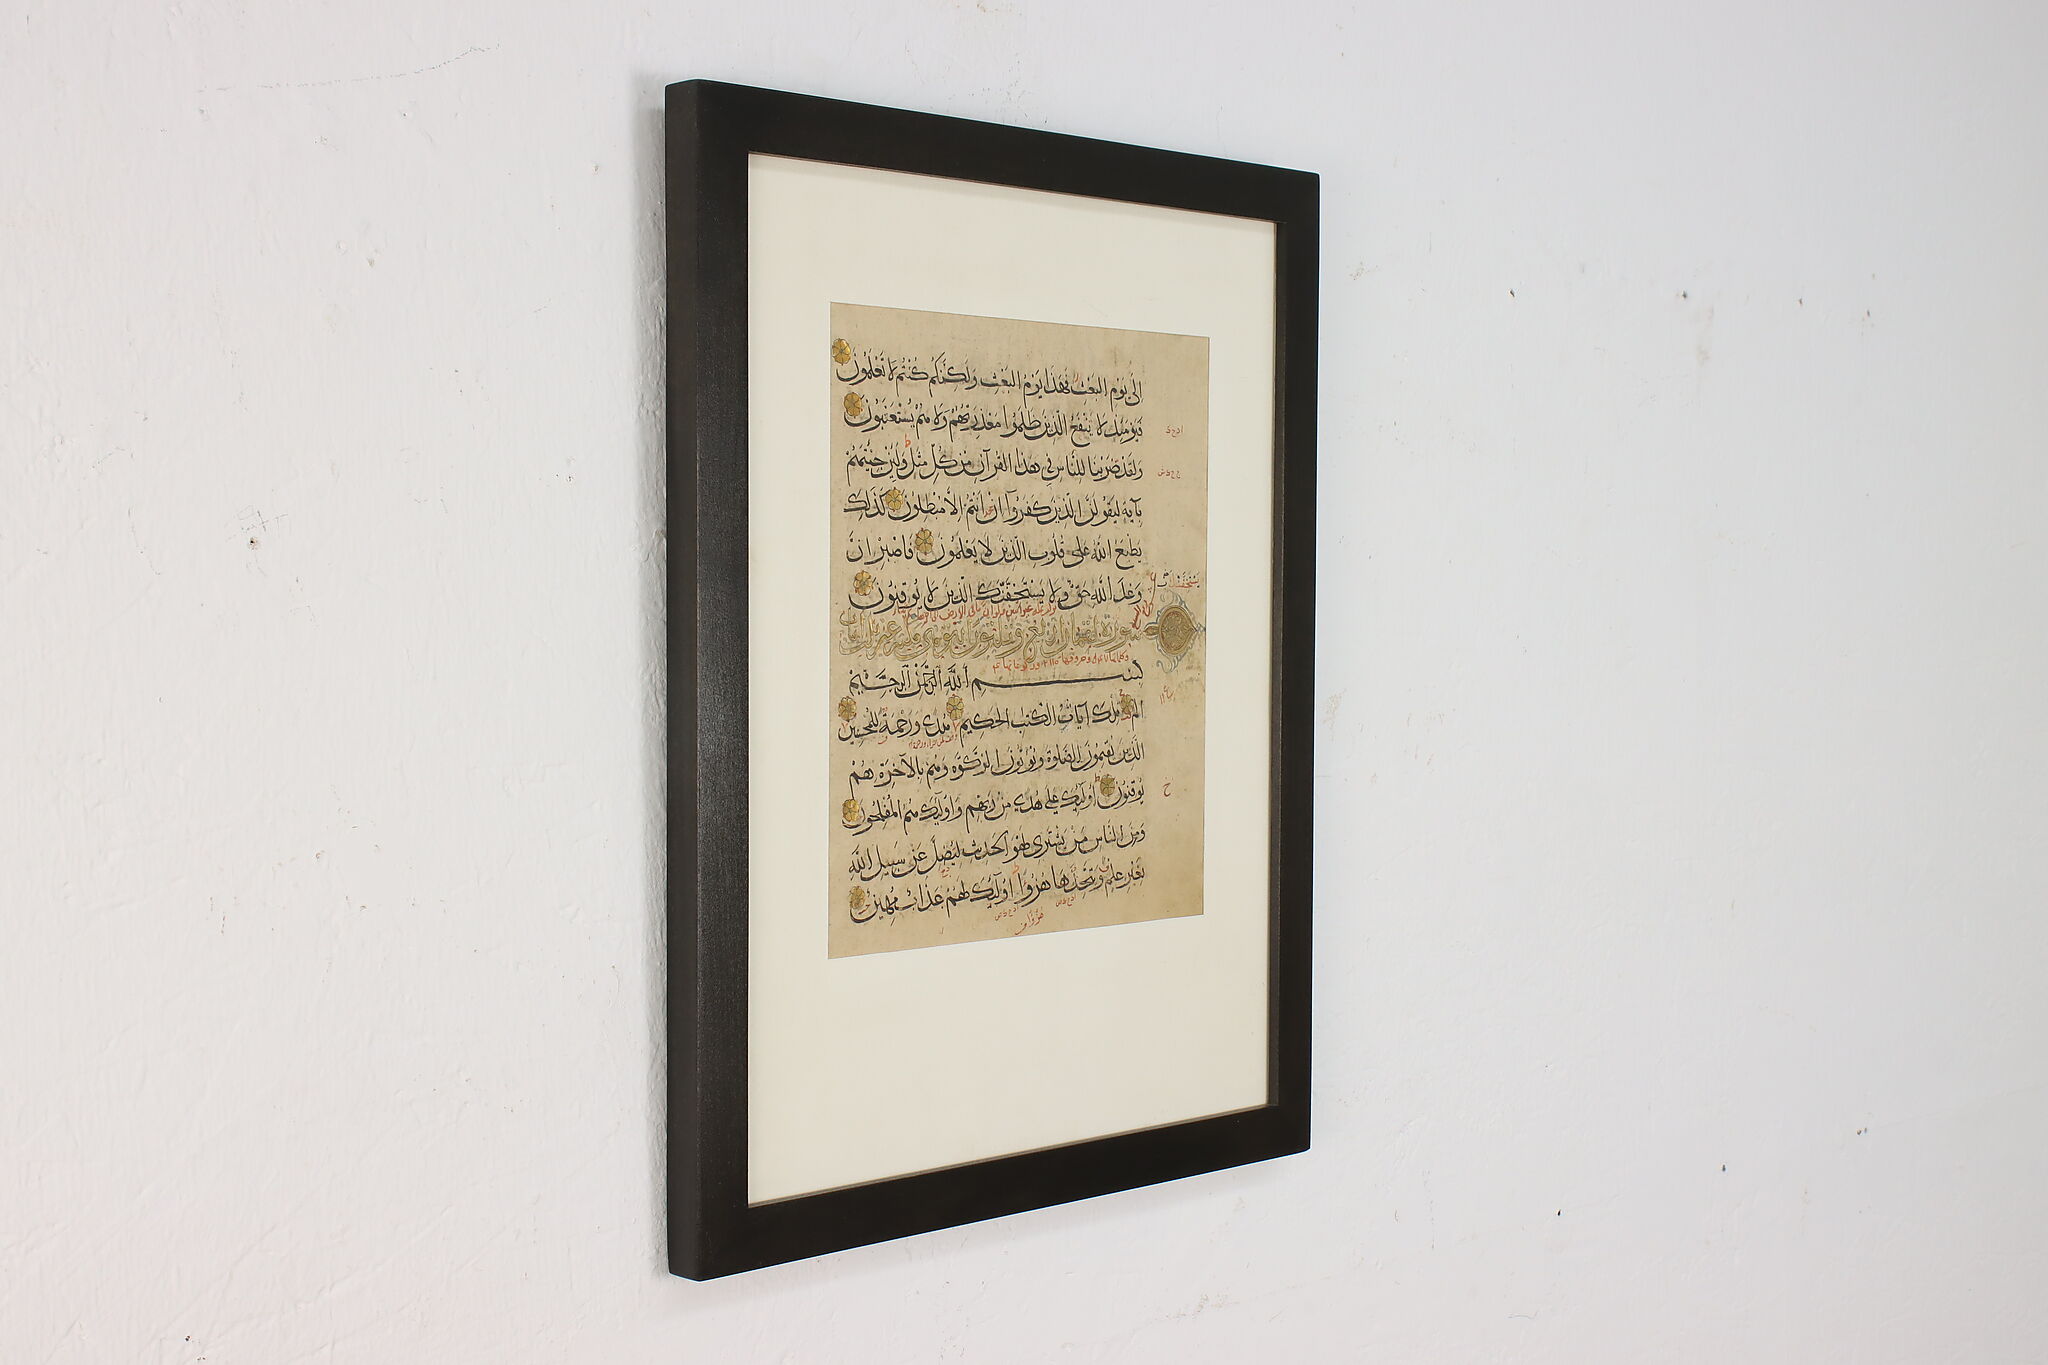 إلى يوم البعث فهذا يوم البعث ولكنكم كنتم لا تعلمون
فيومئذ لا ينفع الذين ظلموا معذرتهم ولا هم يستعتبون
ولقد ضربنا للناس في هذا القرآن من كل مثل ولئن جئتهم
بآية ليقولن الذين كفروا إن أنتم إلا مبطلون كذلك
يطبع الله على قلوب الذين لا يعلمون فاصبر إن
وعد الله حق ولا يستخفنك الذين لا يوقنون
سورة لقمان
بسم الله الرحمن الرحيم
الم تلك آيات الكتب الحكيم هدى ورحمة للمحسنين
الذين يقيمون الصلوة ويؤتون الزكوة وهم بالآخرة هم
يوقنون أولئك على هدى من ربهم وأولئك هم المفلحون
ومن الناس من يشتري لهو الحديث ليضل عن سبيل الله
بغير علم ويتخذها هزوا أولئك لهم عذاب مهين